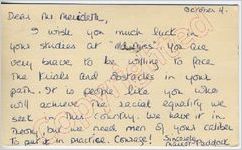 October 4.
Dear Mr Meredith,
I wish you much luck in
your studies at "Ole Miss". You are
very brave to be willing to face
the kinds and obstacles in your
path. It is people like you who
will achieve the racial equality we
seek in this country. We have it in
theory, but we need men of your caliber
to put it in practice. Courage! Sincerely,
Paddock